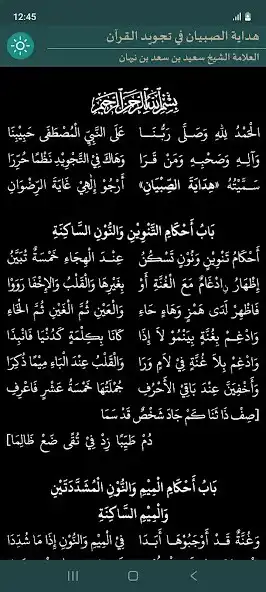 12:45
هداية الصبيان في تجويد القرآن
العلامة الشيخ سعيد بن سعد بن نبهان
بِسْمِ اللهِ الرَّحْمٰنِ الرَّحِيْمِ
الْحَمْدُ لِلّٰهِ وَصَلَّى رَبُّنَا عَلَى النَّبِيِّ الْمُصْطَفَى حَبِيْبِنَا
وَآلِهِ وَصَحْبِهِ وَمَنْ قَرَا وَهَاكَ فِي التَّجْوِيْدِ نَظْمًا حُرِّرَا
سَمَّيْتُهُ «هِدَايَةَ الصِّبْيَانِ» أَرْجُوْ إِلٰهِيْ غَايَةَ الرِّضْوَانِ
بَابُ أَحْكَامِ التَّنْوِيْنِ وَالنُّوْنِ السَّاكِنَةِ
أَحْكَامُ تَنْوِيْنٍ وَنُوْنٍ تَسْكُنُ عِنْدَ الْهِجَاءِ خَمْسَةٌ تُبَيَّنُ
إِظْهَارُ ادْغَامٌ مَعَ الْغُنَّةِ أَوْ بِغَيْرِهَا وَالْقَلْبُ وَالْإِخْفَا رَوَوْا
فَاظْهِرْ لَدَى هَمْزٍ وَهَاءٍ حَاءِ وَالْعَيْنِ ثُمَّ الْغَيْنِ ثُمَّ الْخَاءِ
وَادْغِمْ بِغُنَّةٍ بِيَنْمُوْ لَا إِذَا كَانَا بِكِلْمَةٍ كَدُنْيَا فَانْبِذَا
وَادْغِمْ بِلَا غُنَّةٍ فِيْ لَامٍ وَرَا وَالْقَلْبُ عِنْدَ الْبَاءِ مِيْمًا ذُكِرَا
وَأَخْفِيَنَّ عِنْدَ بَاقِي الْأَحْرُفِ جُمْلَتُهَا خَمْسَةُ عَشْرٍ فَاعْرِفِ
[صِفْ ذَا ثَنَا كَمْ جَادَ شَخْصٌ قَدْ سَمَا
دُمْ طَيِّبًا زِدْ فِيْ تُقًى ضَعْ ظَالِمَا]
بَابُ أَحْكَامِ الْمِيْمِ وَالنُّوْنِ الْمُشَدَّدَتَيْنِ
وَالْمِيْمِ السَّاكِنَةِ
وَغُنَّةٌ قَدْ أَوْجَبُوْهَا أَبَدَا فِي الْمِيْمِ وَالنُّوْنِ إِذَا مَا شُدِّدَا